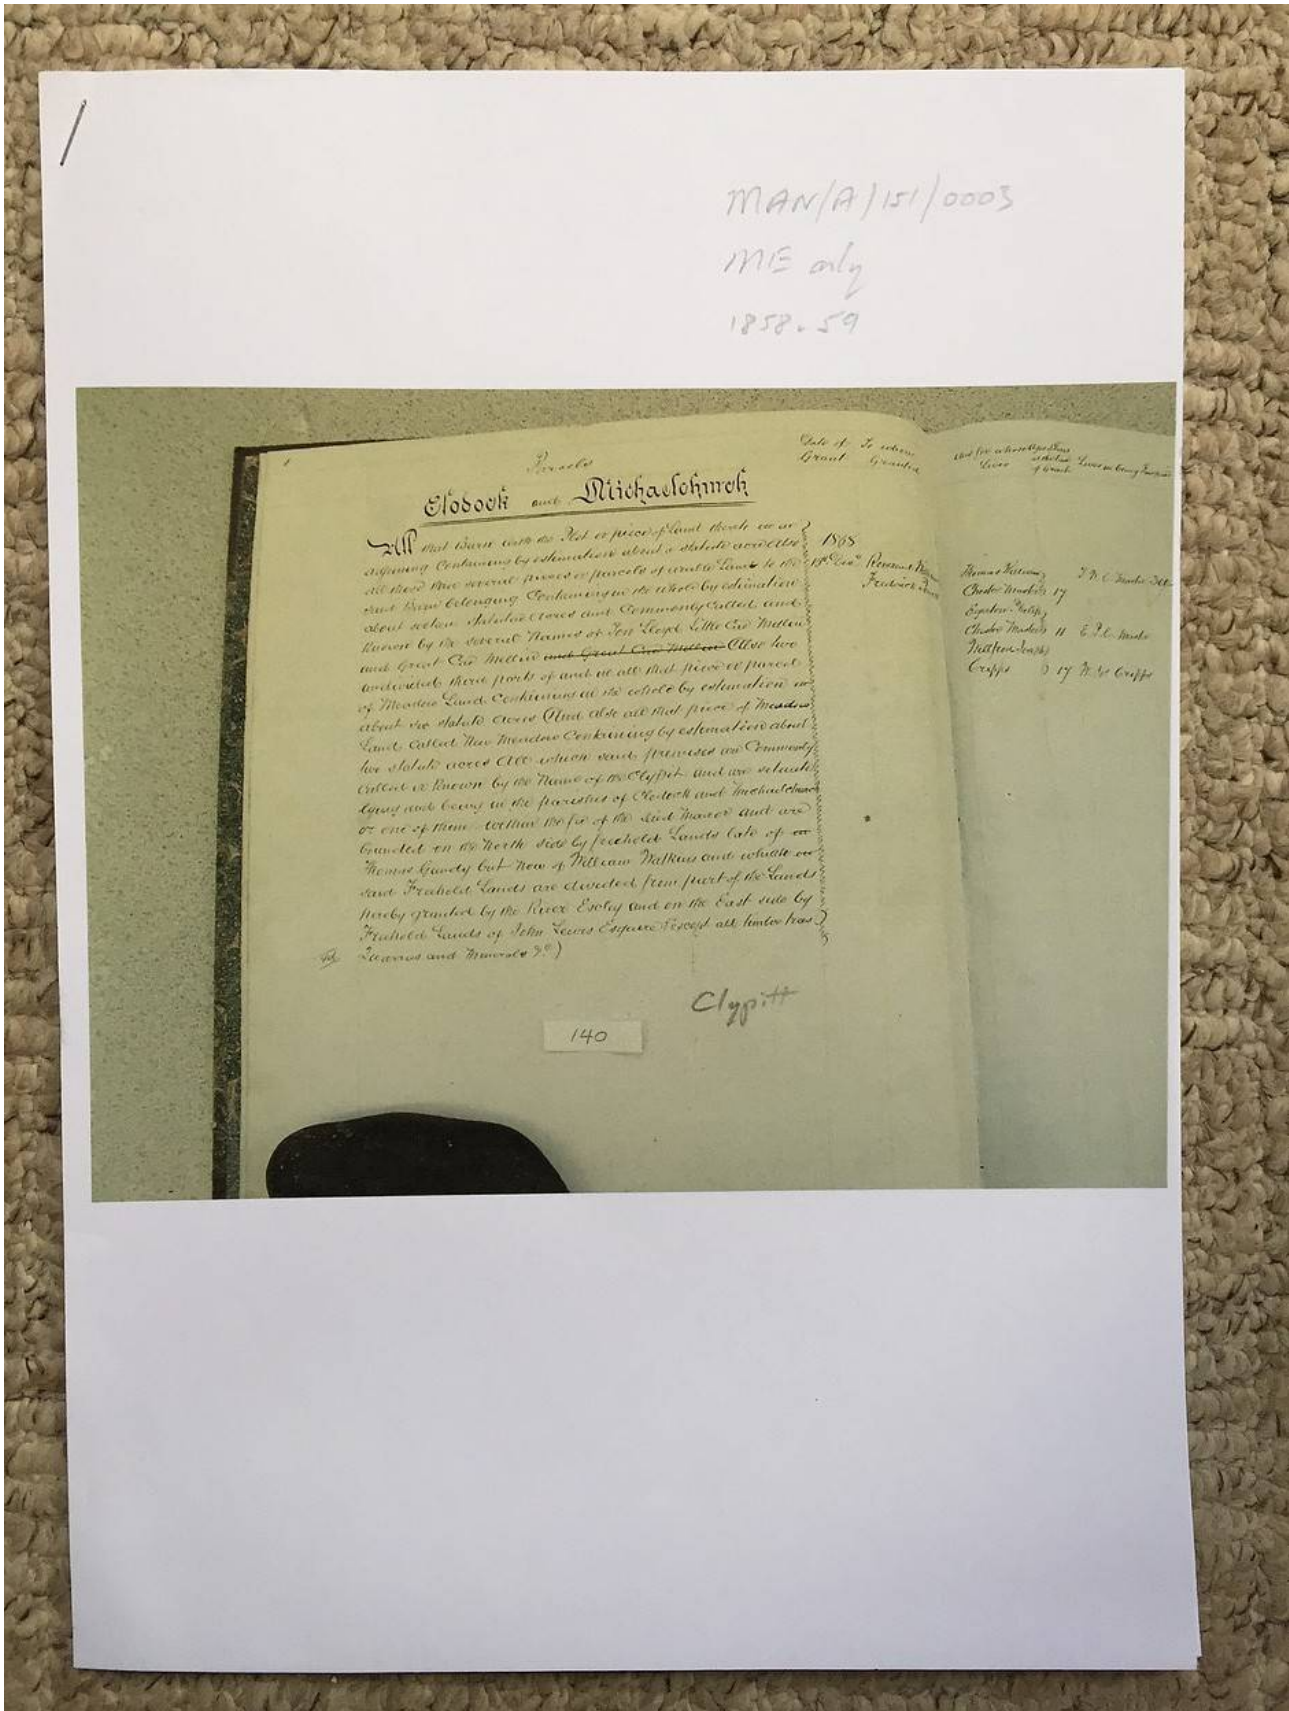 MAN/A/151/0003
ME only
1858-59
Parcels
Date of Grant
To whom Granted
Lives
Clodock and Michaelchurch
All that Barn with the Fold or piece of Land thereto
adjoining Containing by estimation about a statute acre Also
all those several pieces or parcels of arable Land to the
said Barn belonging Containing in the whole by estimation
about statute acres and Commonly Called and
Known by the several Names of Ton Lloyd Little Cae Mellin
and Great Cae Mellin and Great Cae Mellin Also two
undivided third parts of and in all that piece or parcel
of Meadow Land Containing in the whole by estimation
about six statute acres And also all that piece of Meadow
Land Called New Meadow Containing by estimation about
two statute acres All which said premises are Commonly
Called or Known by the Name of the Clypit and are situate
lying and being in the parishes of Clodock and Michaelchurch
or one of them within the fee of the said Manor and are
bounded on the North side by freehold Lands late of
Thomas Gundy but now of William Watkins and which
said Freehold Lands are divided from part of the Lands
hereby granted by the River Escley and on the East side by
Freehold Lands of John Lewis Esquire Except all timber trees
Quarries and Minerals &c)
1868
Reverend
Frederick
Thomas
Chester Masters 17
Chester Masters 11
William Joseph
Cripps 17 W. J. Cripps
Clypitt
140